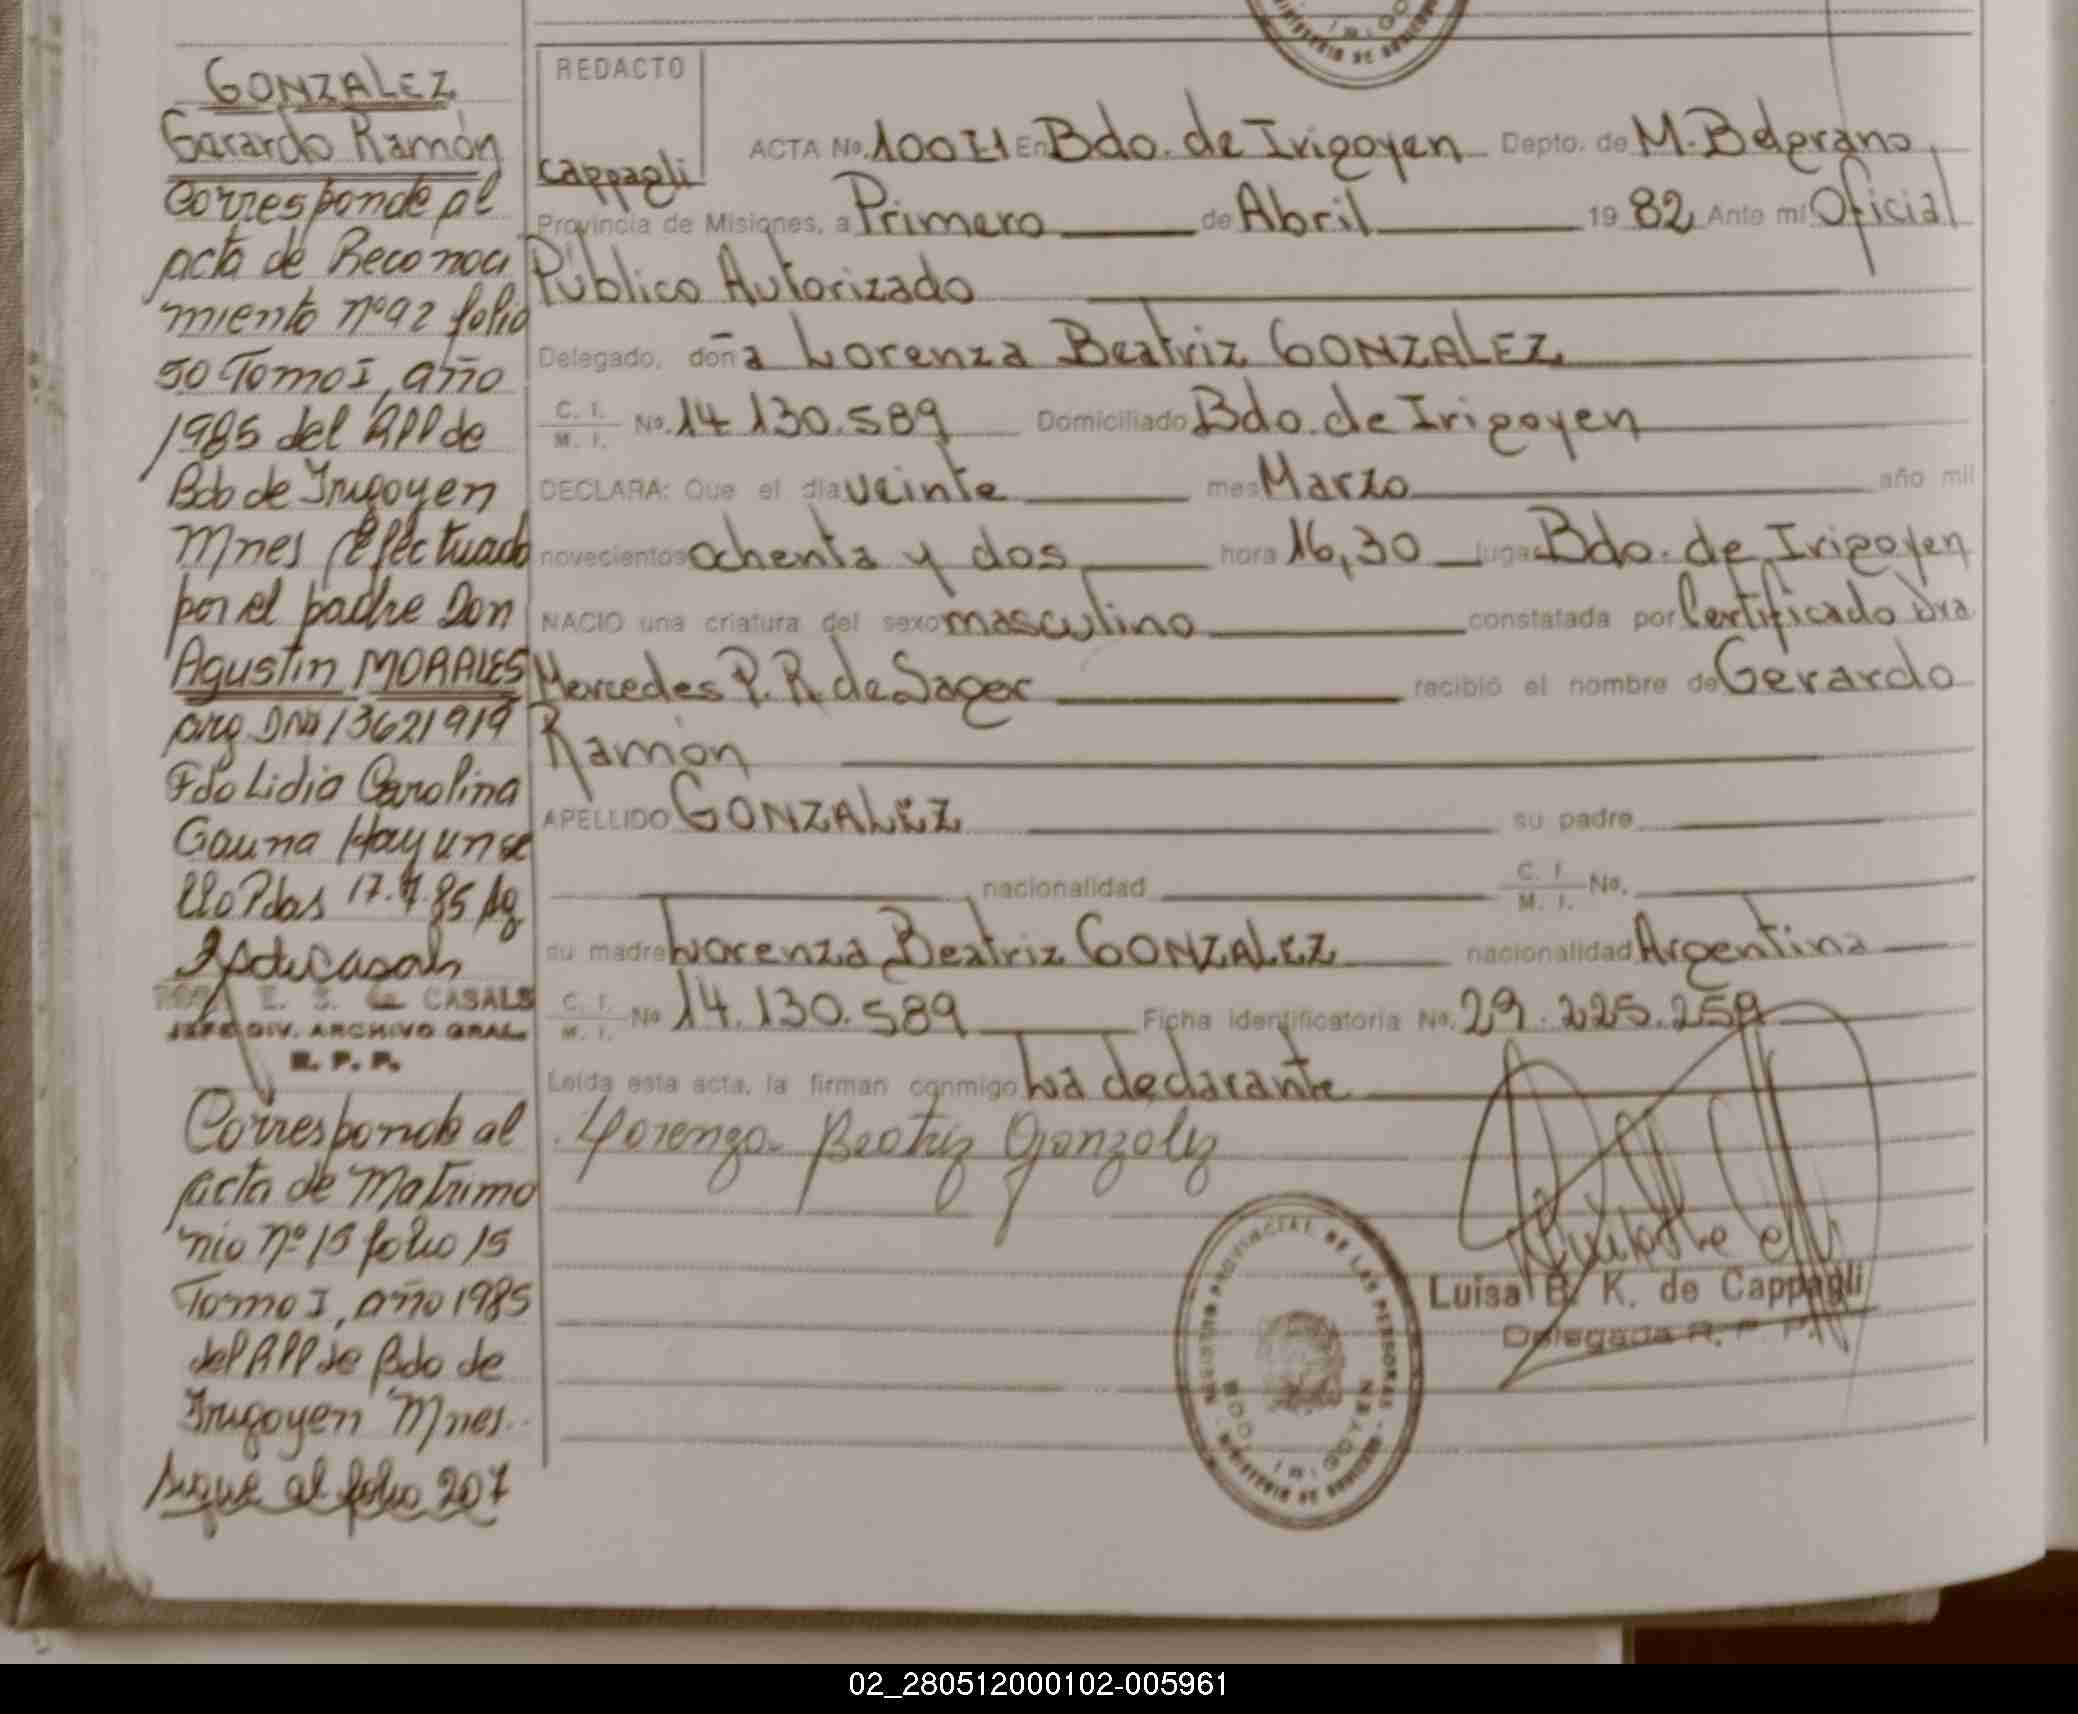 GONZALEZ
Gerardo Ramón
Corresponde al
acta de Reconoci
miento nº 92 folio
50 Tomo I, año
1985 del RPP de
Bdo de Irigoyen
Mnes efectuado
por el padre Don
Agustin MORALES
arg DNI 13621919
Fdo Lidia Carolina
Gauna Hay un se
llo Pdas 17.7.85 Ag
CASALS
JEFE DIV. ARCHIVO GRAL
R. P. P.
Corresponde al
acta de Matrimo
nio nº 15 folio 15
Tomo I, año 1985
del RPP de Bdo de
Irigoyen Mnes.
sigue al folio 207
REDACTO
Cappagli
ACTA No. En Bdo. de Irigoyen Depto. de M. Belgrano,
Provincia de Misiones, a Primero de Abril 19 82 Ante mi Oficial
Público Autorizado
Delegado, doña Lorenza Beatriz GONZALEZ
C. I. / M. I. No. 14.130.589 Domiciliado Bdo. de Irigoyen
DECLARA: Que el día veinte mes Marzo año mil
novecientos ochenta y dos hora 16,30 lugar Bdo. de Irigoyen
NACIO una criatura del sexo masculino constatada por Certificado Dra
Mercedes P. R. de Sager recibió el nombre de Gerardo
Ramón
APELLIDO GONZALEZ su padre
nacionalidad C. I. / M. I. No.
su madre Lorenza Beatriz GONZALEZ nacionalidad Argentina
C. I. / M. I. No 14.130.589 Ficha identificatoria No. 29.225.259
Leída esta acta, la firman conmigo La declarante
Lorenza Beatriz Gonzalez
REGISTRO PROVINCIAL DE LAS PERSONAS
MINISTERIO DE GOBIERNO
BDO. IRIGOYEN
Luisa B. K. de Cappagli
Delegada R. P. P.
02_280512000102-005961